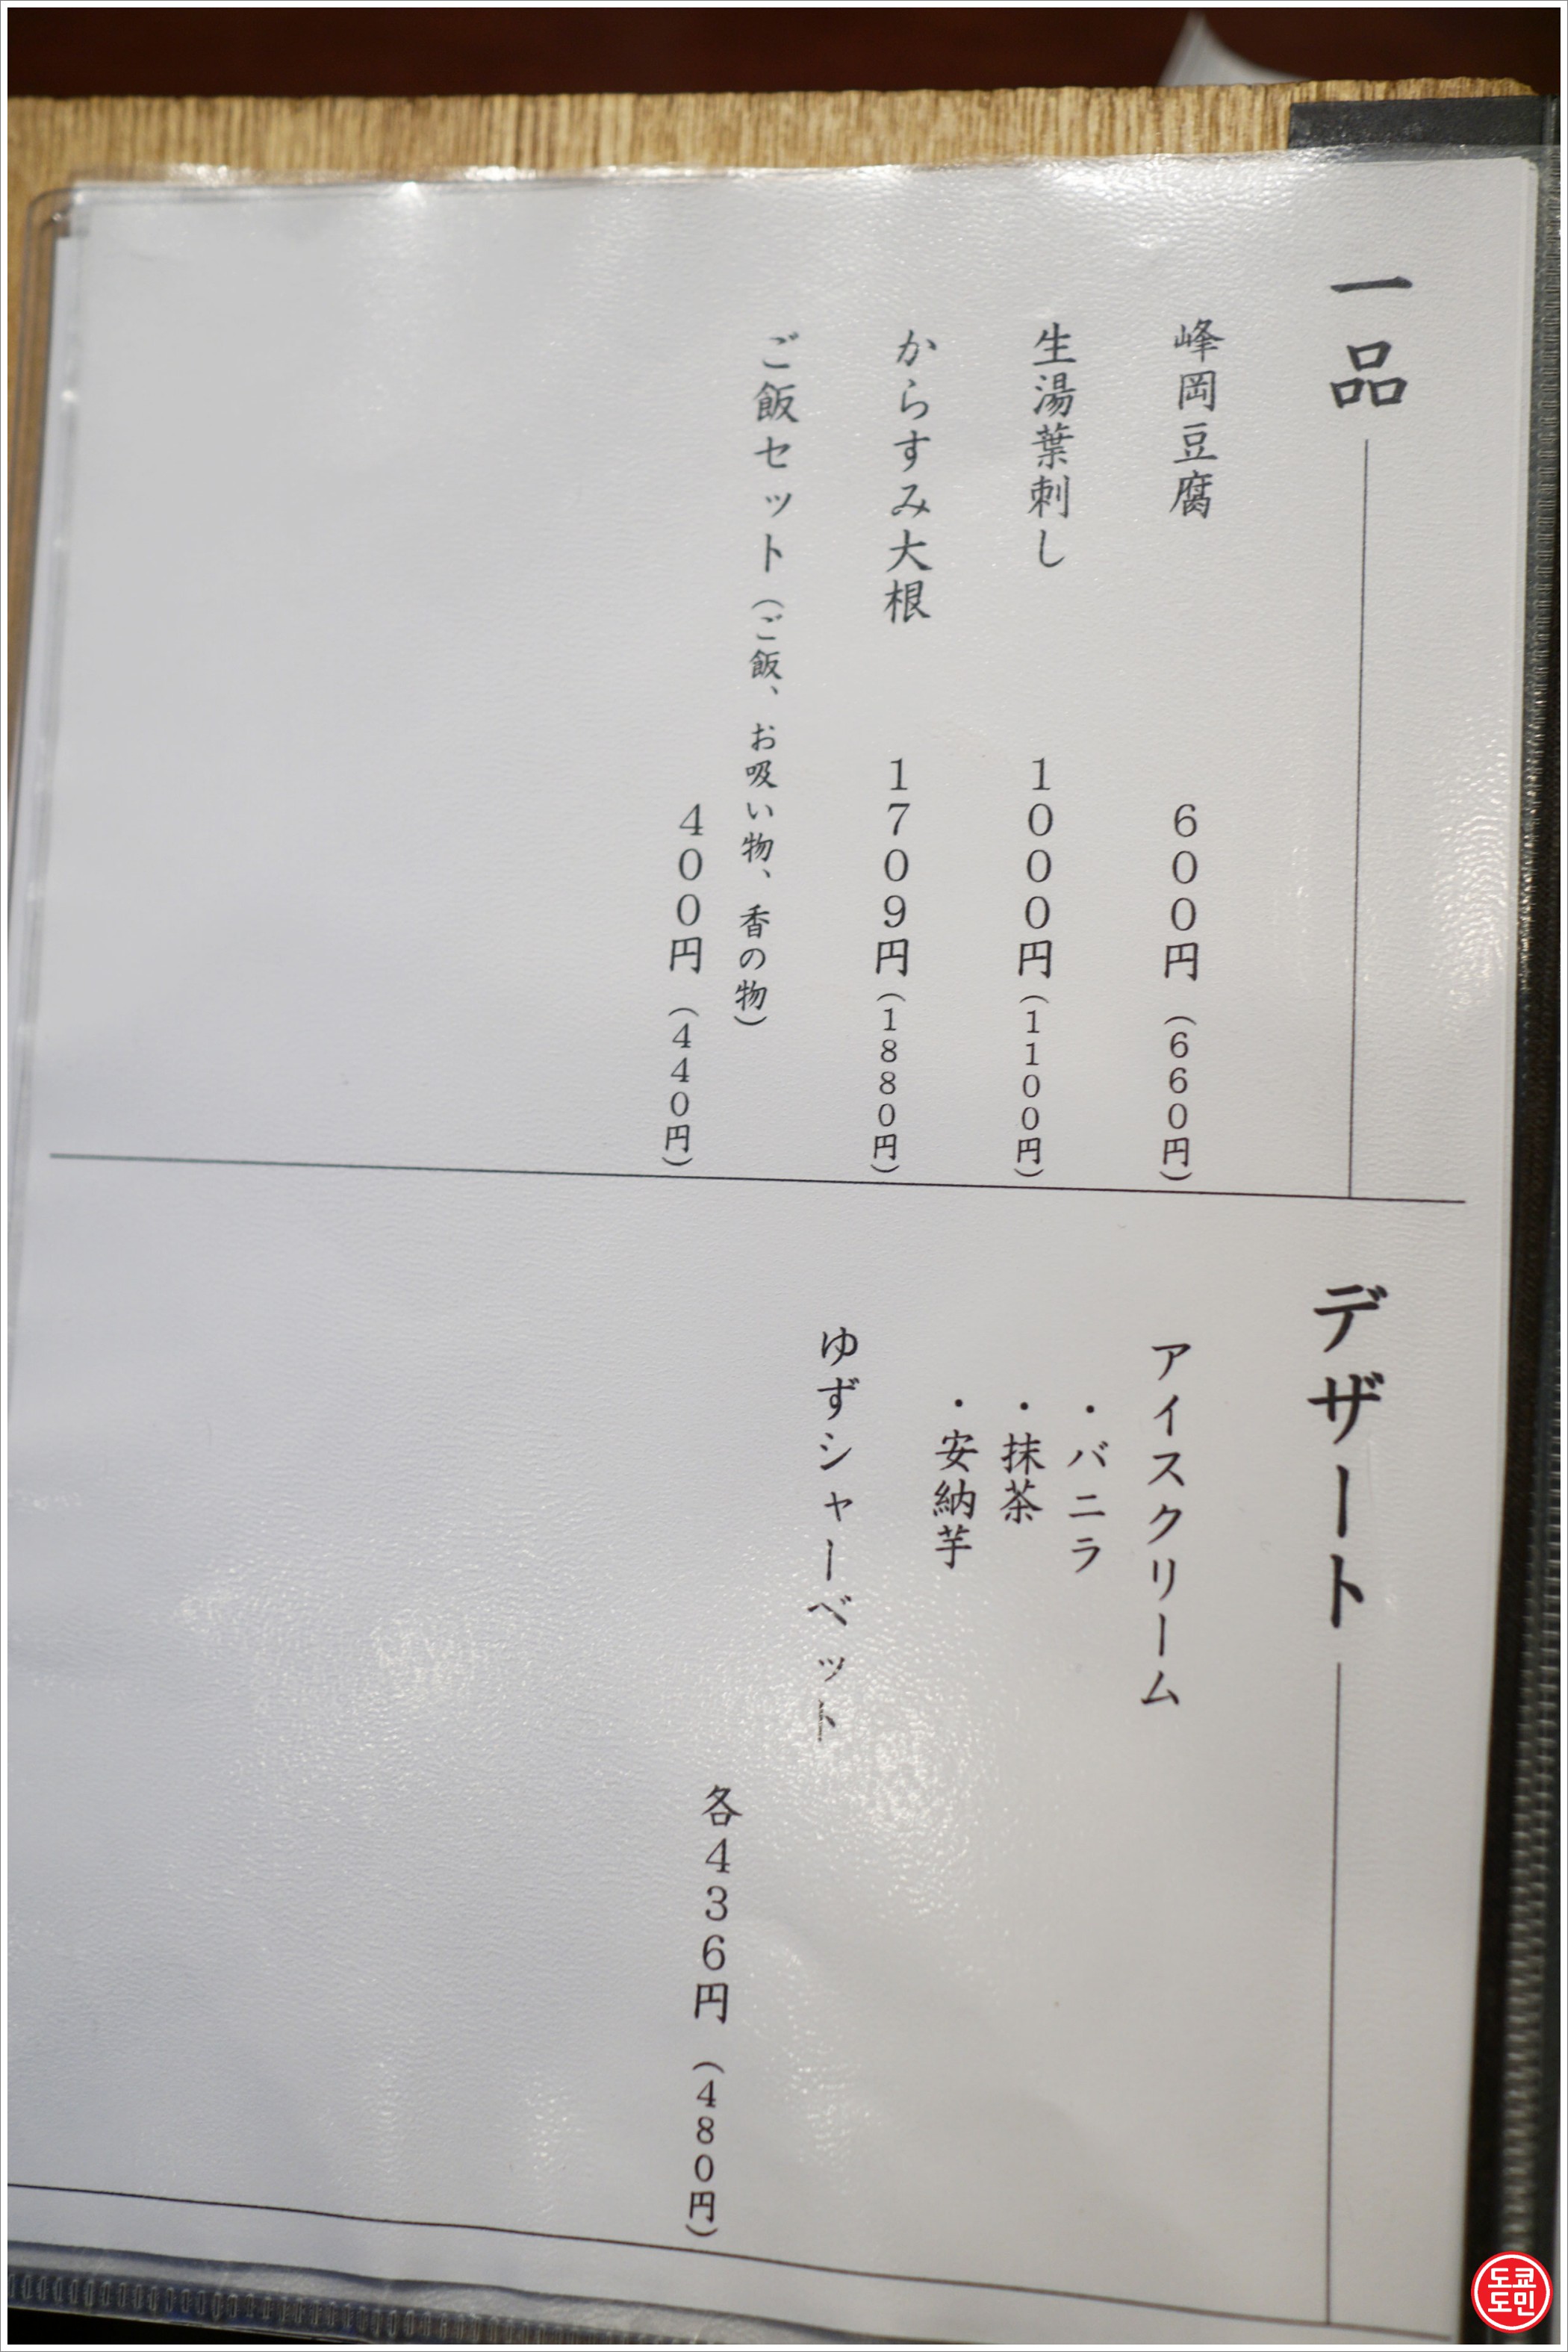 一品
峰岡豆腐 600円(660円)
生湯葉刺し 1000円(1100円)
からすみ大根 1709円(1880円)
ご飯セット(ご飯、お吸い物、香の物)
400円(440円)
デザート
アイスクリーム
・バニラ
・抹茶
・安納芋
ゆずシャーベット
各436円(480円)
도쿄
도민